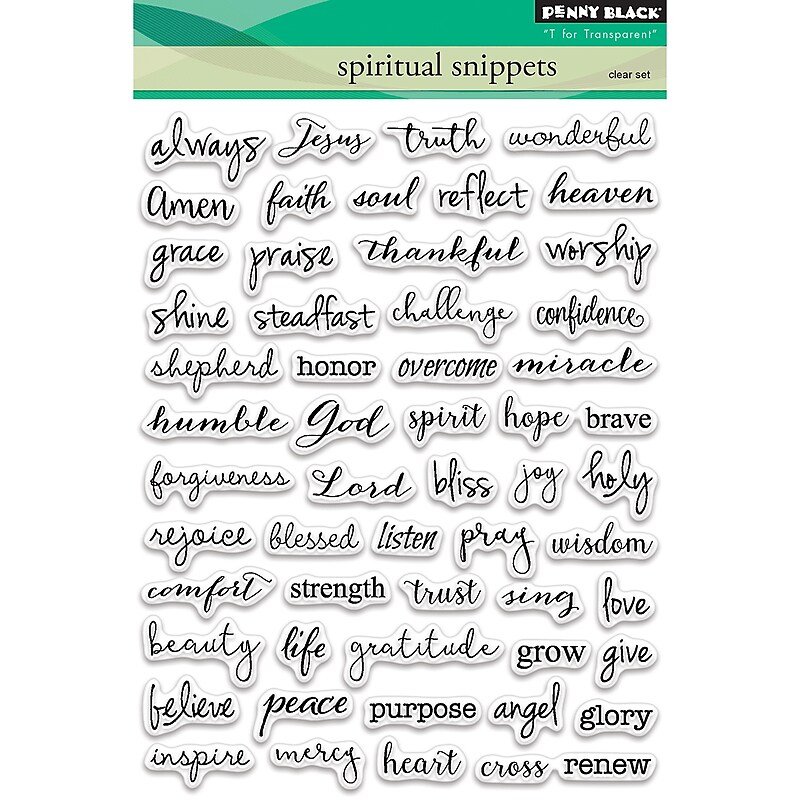 PENNY BLACK®
"T for Transparent"
spiritual snippets
clear set
always Jesus truth wonderful
Amen faith soul reflect heaven
grace praise thankful worship
shine steadfast challenge confidence
shepherd honor overcome miracle
humble God spirit hope brave
forgiveness Lord bliss joy holy
rejoice blessed listen pray wisdom
comfort strength trust sing love
beauty life gratitude grow give
believe peace purpose angel glory
inspire mercy heart cross renew